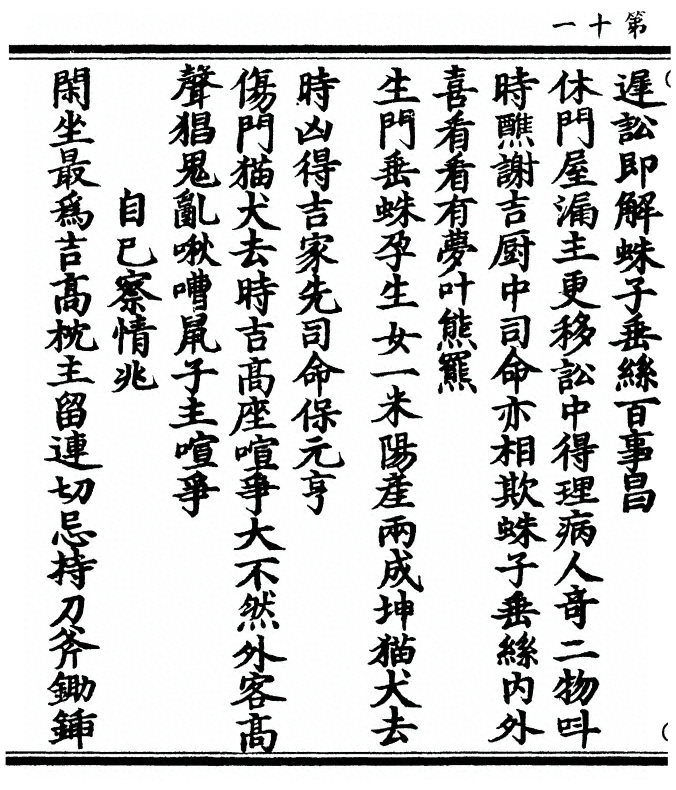 第十一
遲訟即解蛛子垂絲百事昌
休門屋漏主更移訟中得理病人竒二物呌
時醮謝吉厨中司命亦相欺蛛子垂絲内外
喜看看有夢叶熊羆
生門垂蛛孕生女一来陽產兩成坤猫犬去
時凶得吉家先司命保元亨
傷門猫犬去時吉髙座喧爭大不然外客髙
聲猖鬼亂啾嘈鼠子主喧爭
自已察情兆
閑坐最為吉髙枕主留連切忌持刀斧鋤鍤